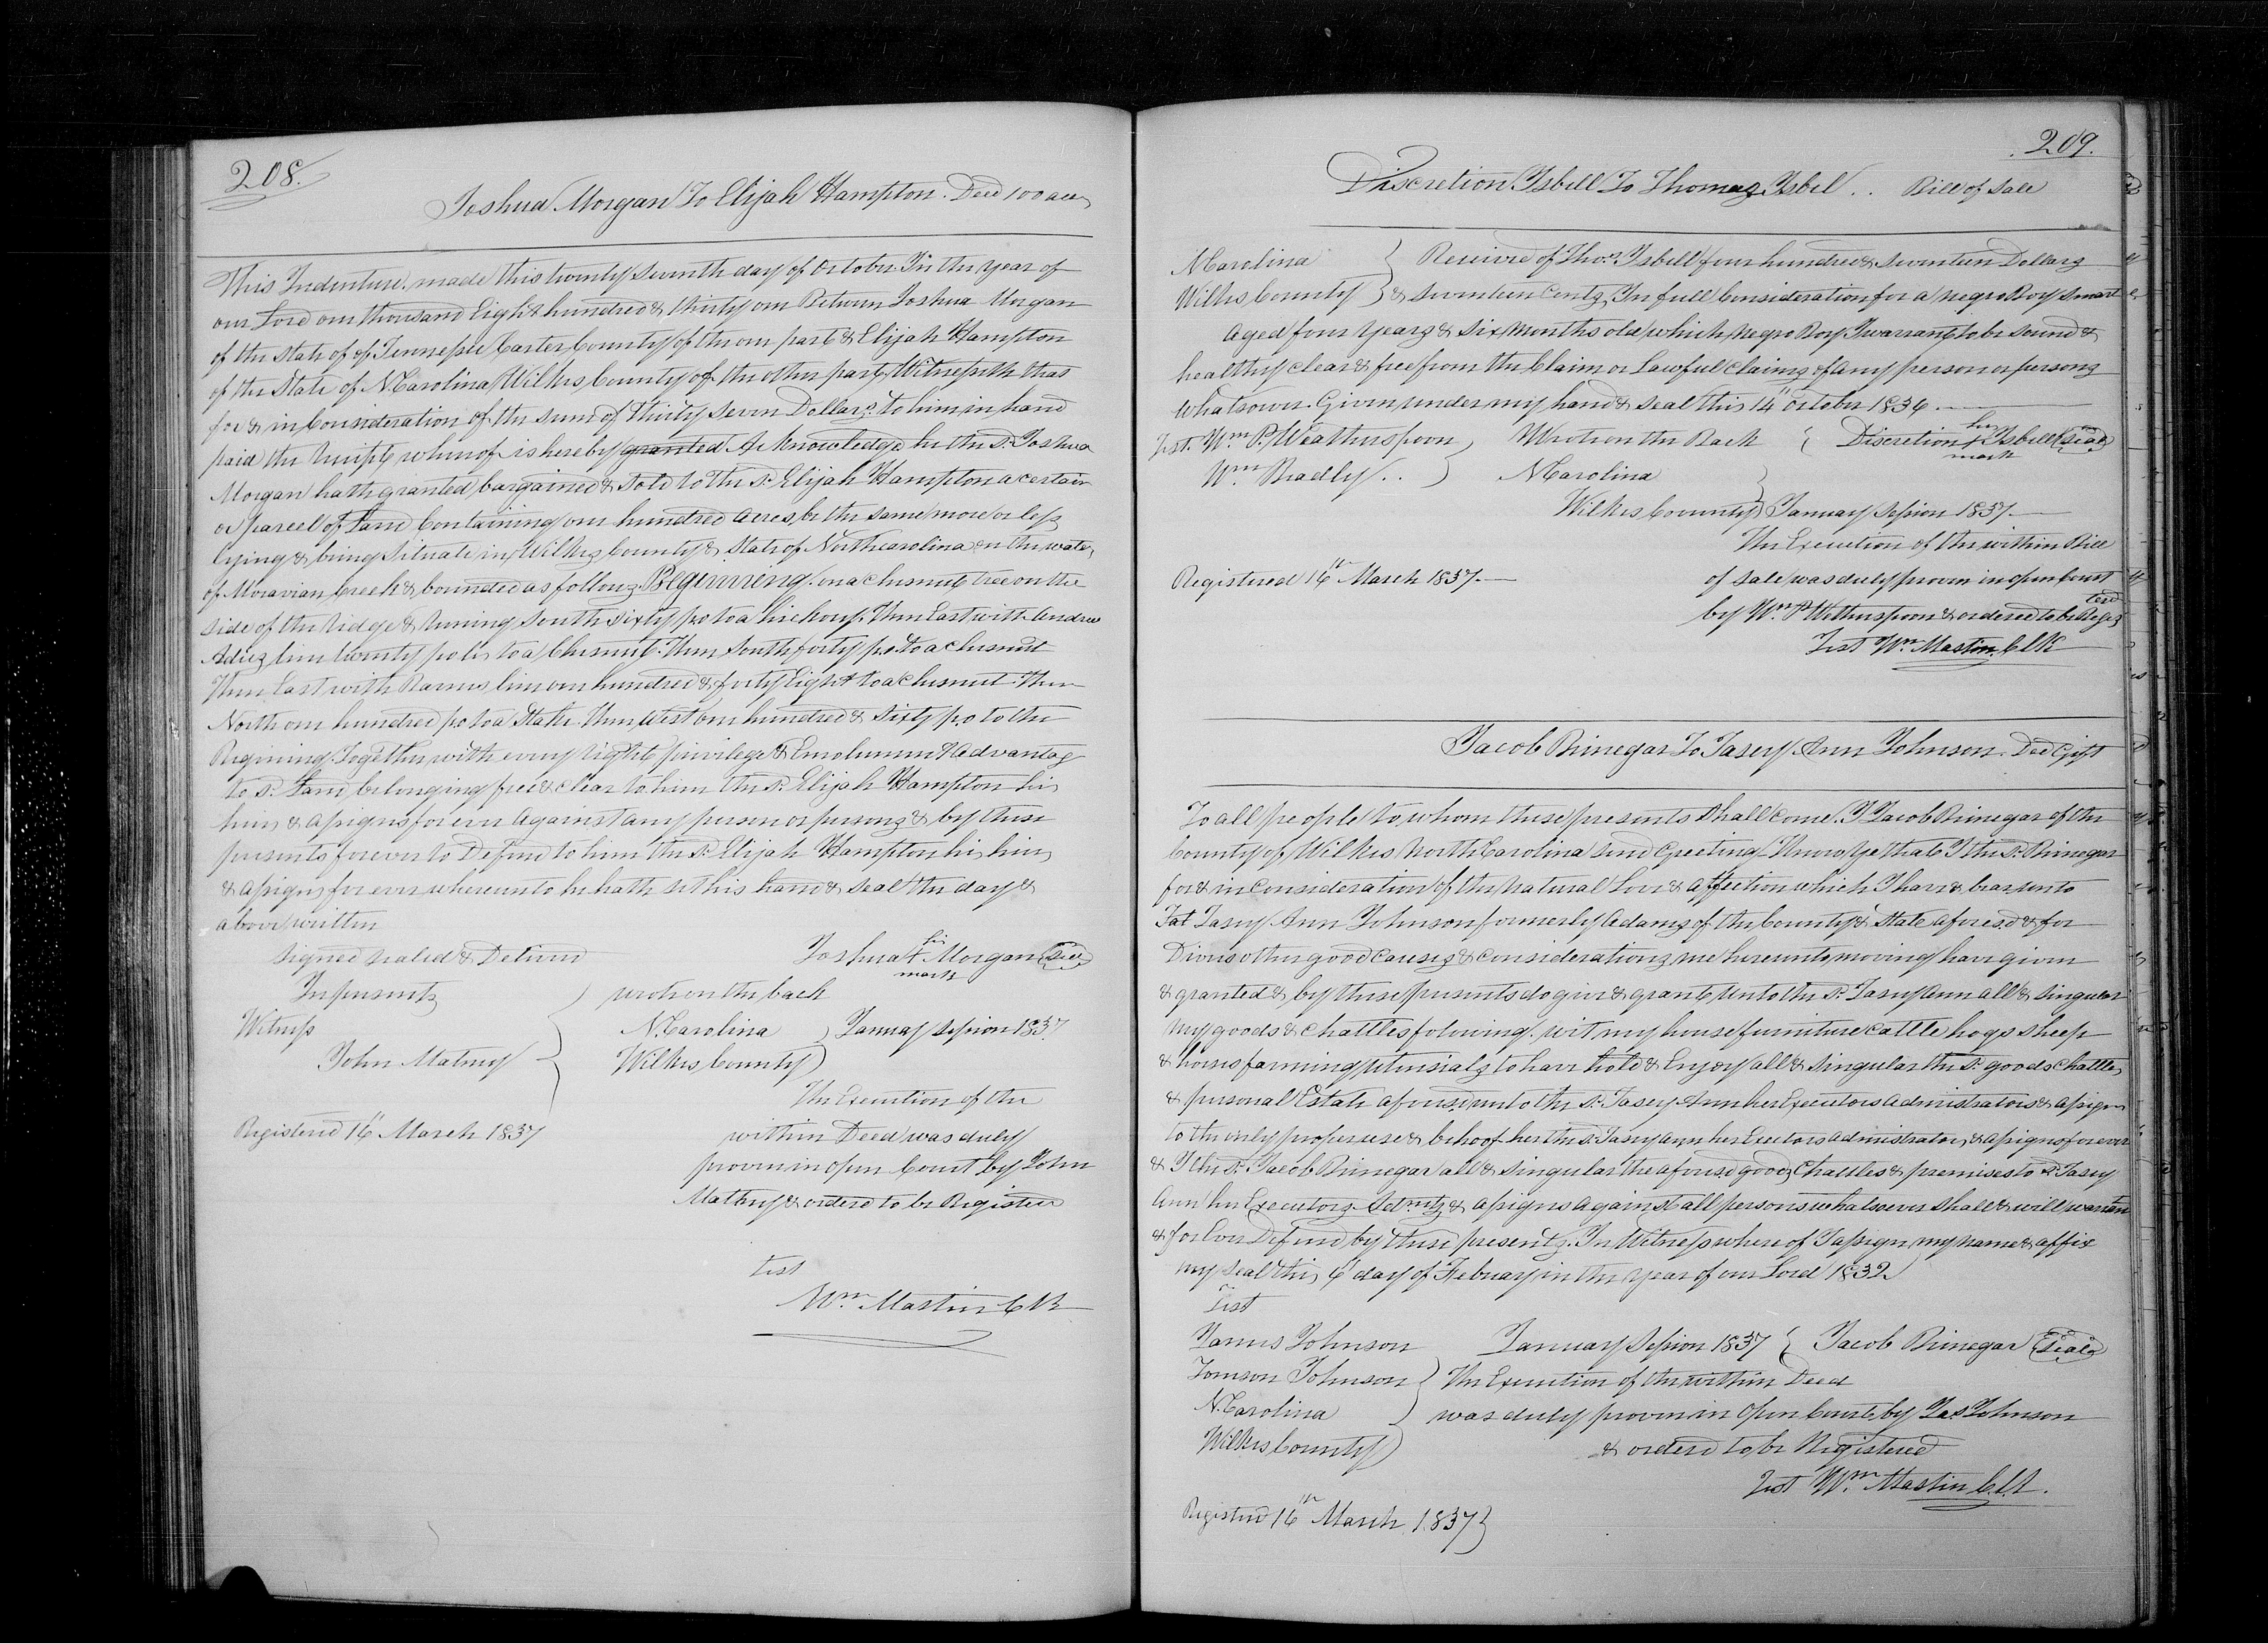 208.
Joshua Morgan To Elijah Hampton. Deed 100 acres
This Indenture made this twenty seventh day of October In the year of
our Lord one thousand Eight hundred & thirty one Between Joshua Morgan
of the State of of Tennessee Carter County of the one part & Elijah Hampton
of the State of N Carolina Wilkes County of the other part Witnesseth that
for & in Consideration of the sum of thirty seven Dollars to him in hand
paid the receipt whereof is hereby granted Acknowledged he the sd. Joshua
Morgan hath granted bargained & sold to the sd. Elijah Hampton a certain
or parcel of Land Containing one hundred acres be the same more or less
lying & being Situate in Wilkes County & State of North carolina on the waters
of Moravian Creek & bounded as follows Beginning on a chesnut tree on the
side of the ridge & runing South sixty po to a hickory. then East with Andrew
line twenty poles to a Chesnut. Then South forty po. to a chesnut
Then East with Barnes line one hundred & forty Eight to a Chesnut. Then
North one hundred po to a Stake. Then West one hundred & sixty po to the
Begining Together with every right privilege & Emolument & Advantage
to sd. Land belonging free & clear to him the sd. Elijah Hampton his
heirs & assigns for ever Against any person or persons & by these
presents forever to Defend to him the sd. Elijah Hampton his heirs
& assigns for ever whereunto he hath set his hand & seal the day &
above written
Signed sealed & Deliverd
Joshua his + mark Morgan (Seal)
In presents
wrote on the back
Witness
N. Carolina } January Session 1837
John Matney
Wilkes County)
The Execution of the
Registered 16th March 1837
within Deed was duly
proven in open Court by John
Mathny & orderd to be Registerd
test
Wm. Mastin Clk
209.
Discretion Isbell To Thomas Isbel.. Bill of Sale
N Carolina } Received of Thos. Isbell four hundred & seventeen Dollars
Wilkes County } & seventeen Cents In full Consideration for a negro Boy Smart
aged four years & six months old which negro Boy I warrant to be sound &
healthy clear & free from the Claim or Lawful claims of any person or persons
whatsoever. Given under my hand & seal this 14th October 1836.
Test. Wm. P. Weatherspoon } Wrote on the Back { Discretion her + mark Isbell (Seal)
Wm. Bradly.. ) N Carolina
Wilkes County } January Session 1837
The Execution of the within Bill
Registered 16th March 1837.
of Sale was duly proven in open Court
by Wm. P Witherspoon & ordered to be Registerd
Test Wm. Mastin Clk
Jacob Brinegar To Tasey Ann Johnson. Deed Gift
To all people to whom these presents Shall Come. I Jacob Brinegar of the
County of Wilkes North Carolina Send Greeting Know Ye that I the sd. Brinegar
for & in Consideration of the Natural Love & affection which I have & bear unto
Tasey Ann Johnson formerly Adams of the County & State aforesd & for
Divers other good causes & considerations me hereunto moving have given
& granted & by these presents do give & grant unto the sd. Tasey Ann all & singular
My goods & Chattles folowing. wit, my house furniture cattle hogs sheep
& horses farming utensials to have hold & Enjoy all & singular the sd. goods chattles
& personal Estate aforesd unto the sd. Tasey Ann her Executors administrators & assigns
to the only proper use & behoof her the sd. Tasey Ann her Exectors Administrators & assigns forever
& I the sd. Jacob Brinegar all & singular the aforesd. goods Chattles & premises to sd. Tasey
Ann her Executors & assigns against all persons whatsoever shall & will warrant
& for Ever Defend by these presents. In Witness where of I assign my name & affix
my seal this 6 day of Febuary in the year of our Lord 1832
Test
James Johnson January Session 1837 { Jacob Brinegar (Seal)
Tomson Johnson } The Execution of the within Deed
N. Carolina ) was duly proven in Open Court by Jas Johnson
Wilkes County) & orderd to be Registered
Test Wm. Mastin Clk.
Registerd 16th March 1837}